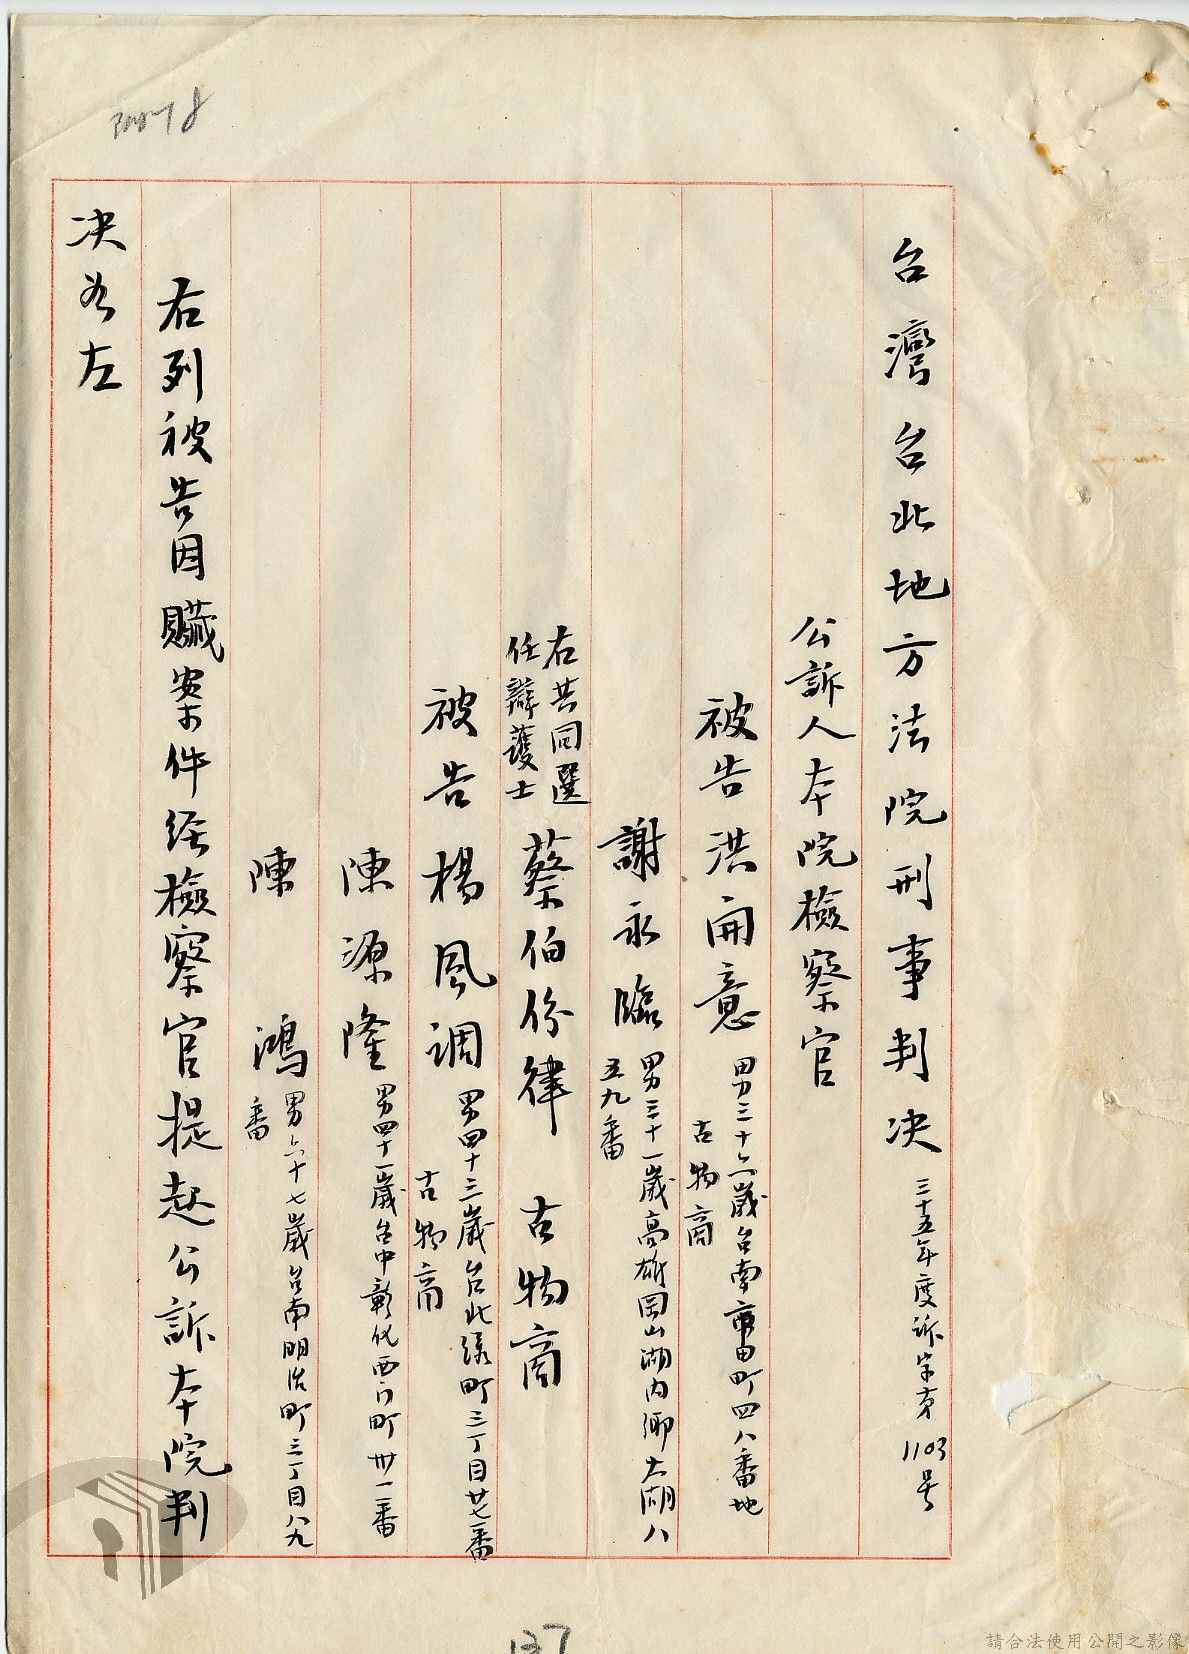 台灣台北地方法院刑事判決 三十五年度訴字第1103号
公訴人本院檢察官
被告洪開意 男三十六歲台南市田町四八番地
古物商
謝永臨 男三十一歲高雄岡山湖內鄉大湖八
五九番
右共同選
任辯護士
蔡伯份律 古物商
被告楊風調 男四十三歲台北綠町三丁目廿七番
古物商
陳源隆 男四十一歲台中彰化西门町卅一番
陳 鴻 男六十七歲台南明治町三丁目八九
番
右列被告因贓案件経檢察官提起公訴本院判
決如左
137
請合法使用公開之影像